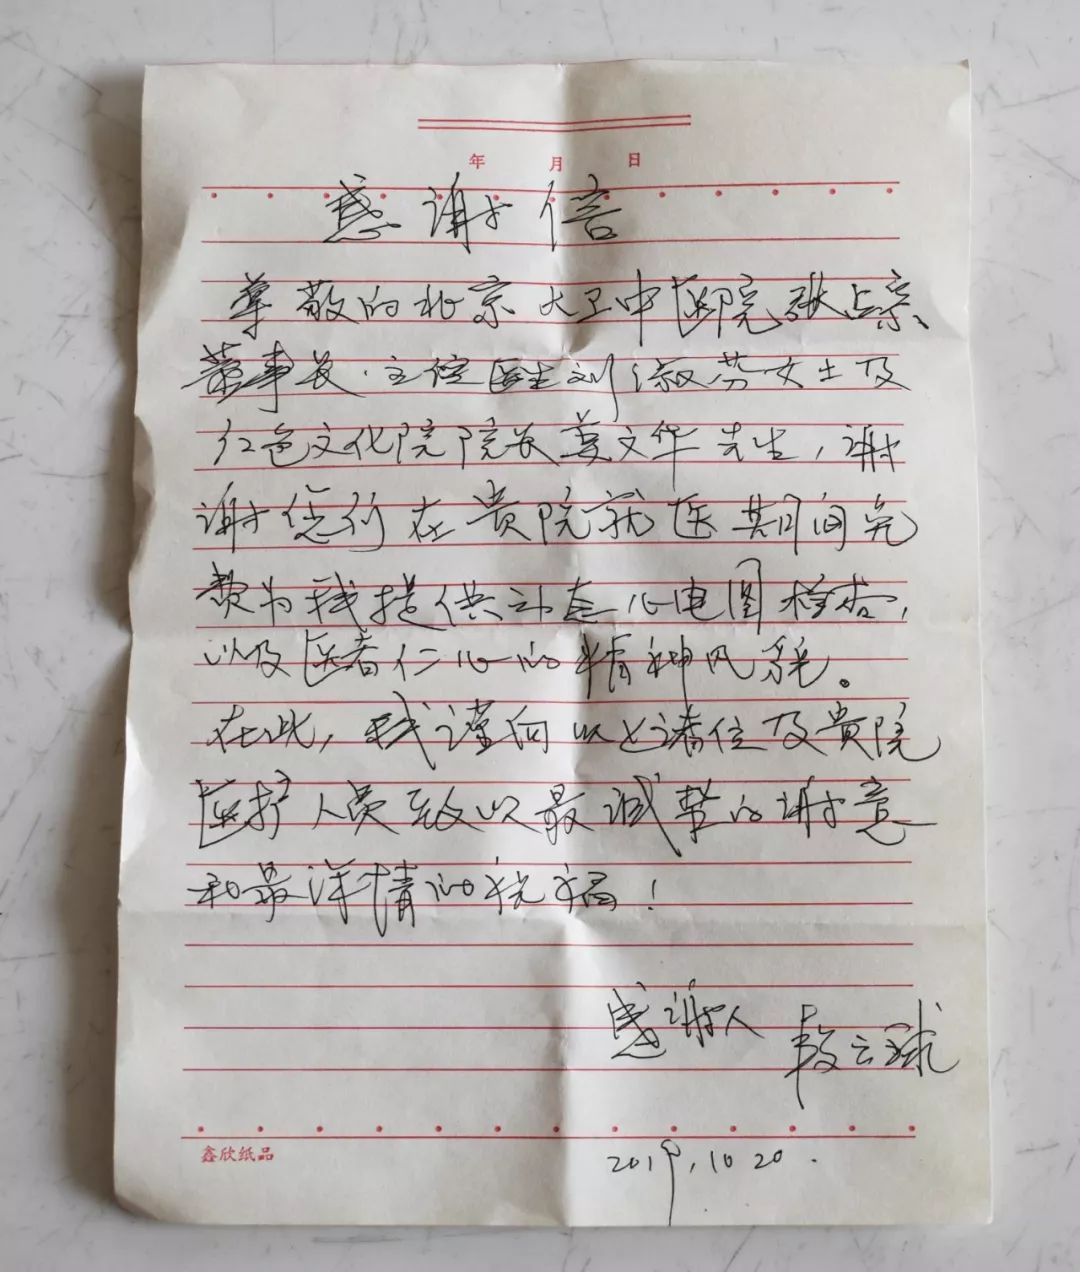 年 月 日
感谢信
尊敬的北京大卫中医院张占宗、
董事长.主任医生刘淑芬女士及
红色文化院院长姜文华先生，谢
谢您们在贵院就医期间免
费为我提供动态心电图检查，
以及医者仁心的精神风貌。
在此，我谨向以上诸位及贵院
医护人员致以最诚挚的谢意
和最深情的祝福！
感谢人
段云球
鑫欣纸品
2019,10 20.